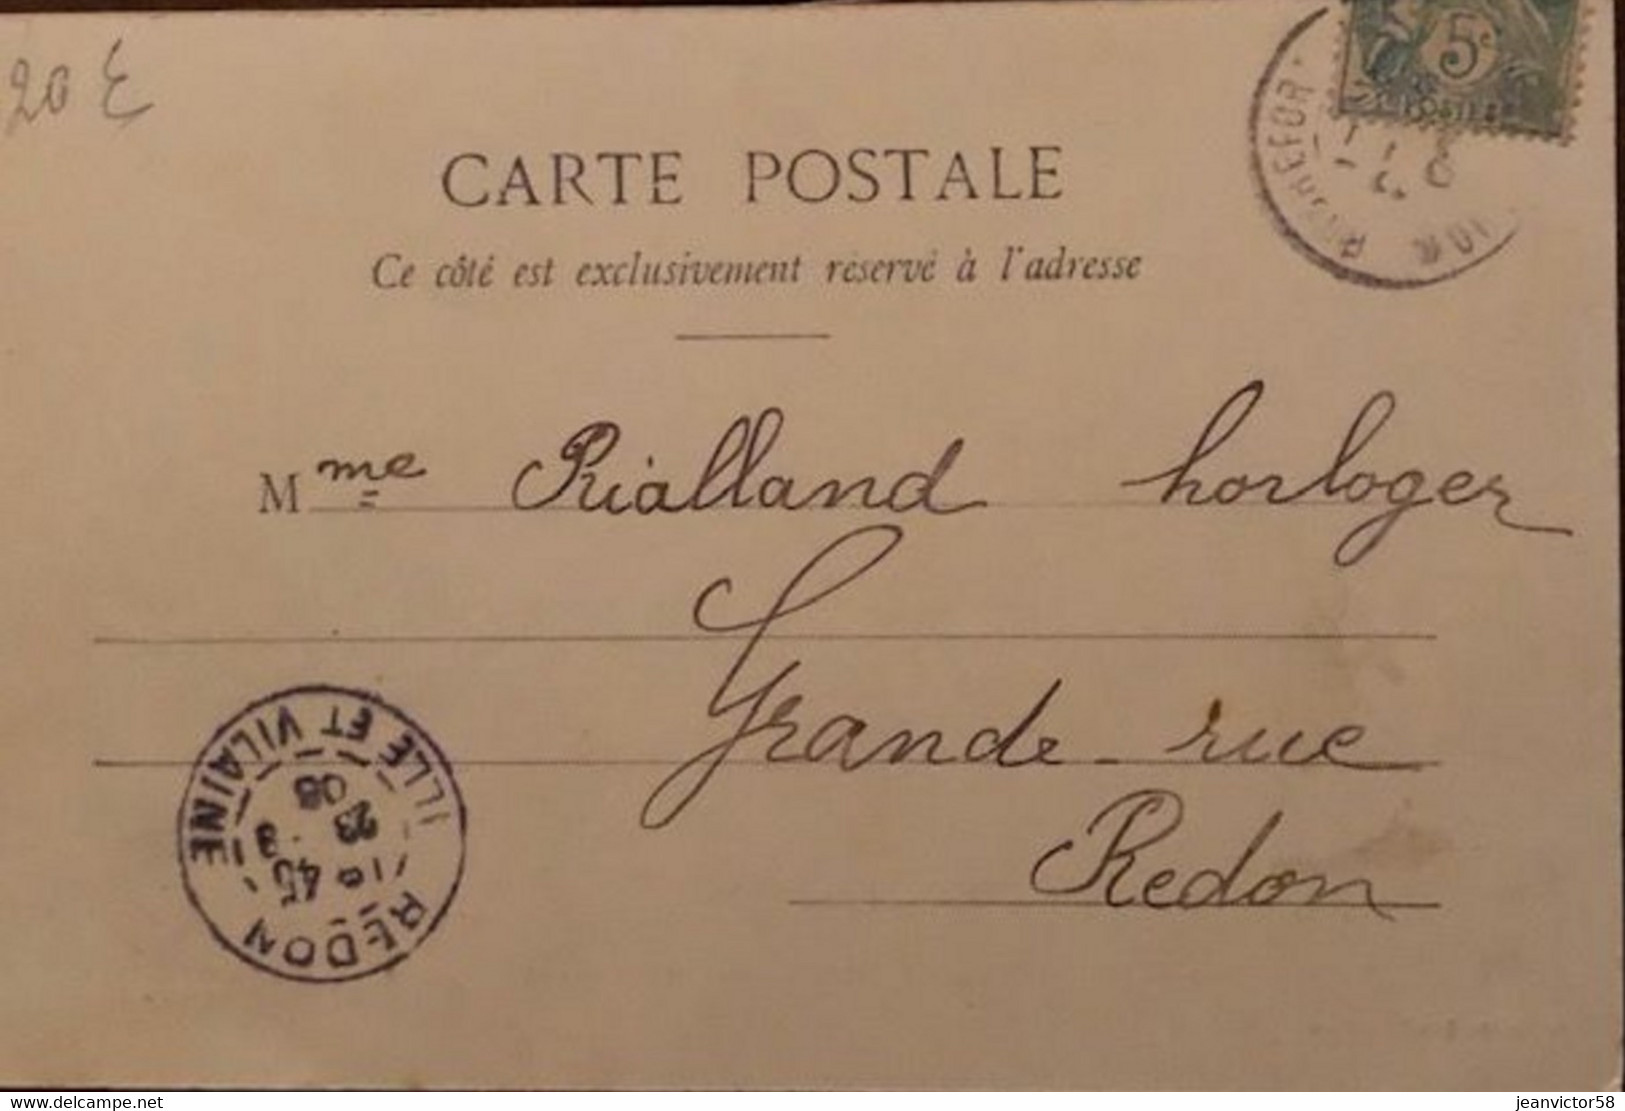 20 E
5c
POSTES
CARTE POSTALE
Ce côté est exclusivement réservé à l'adresse
Mme Rialland horloger
Grande rue
Redon
REDON
10 45
23 3
08
ILLE ET VILAINE
www.delcampe.net
jeanvictor58